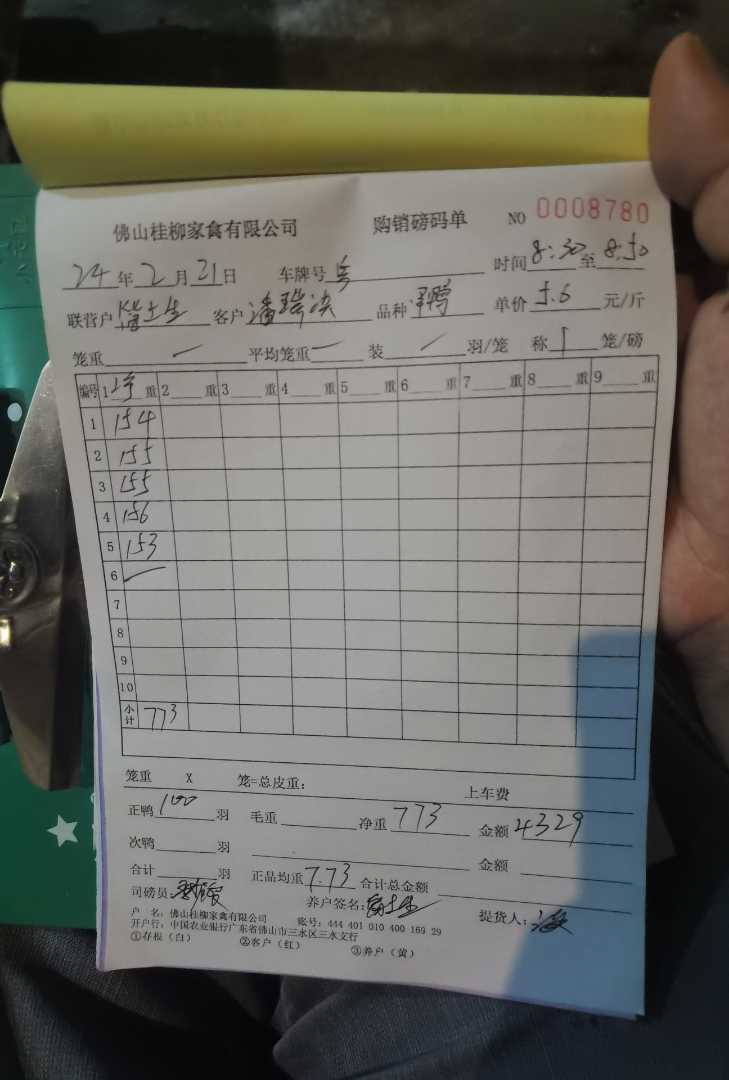 佛山桂柳家禽有限公司 购销磅码单 NO 0008780
24年2月21日 车牌号粤 时间8:30至8:50
联营户 客户潘 品种 鸭 单价5.6元/斤
笼重 一 平均笼重 一 装 一 羽/笼 称1笼/磅
编号 1 重 2 重 3 重 4 重 5 重 6 重 7 重 8 重 9 重
1 154
2 155
3 155
4 156
5 153
6 一
7
8
9
10
小计 773
笼重 X 笼=总皮重: 上车费
正鸭100羽 毛重 净重773 金额4329
次鸭 羽 金额
合计 羽 正品均重7.73 合计总金额
司磅员: 养户签名: 提货人:
户 名: 佛山桂柳家禽有限公司 账号: 444 401 010 400 169 29
开户行: 中国农业银行广东省佛山市三水区三水支行
①存根(白) ②客户(红) ③养户(黄)